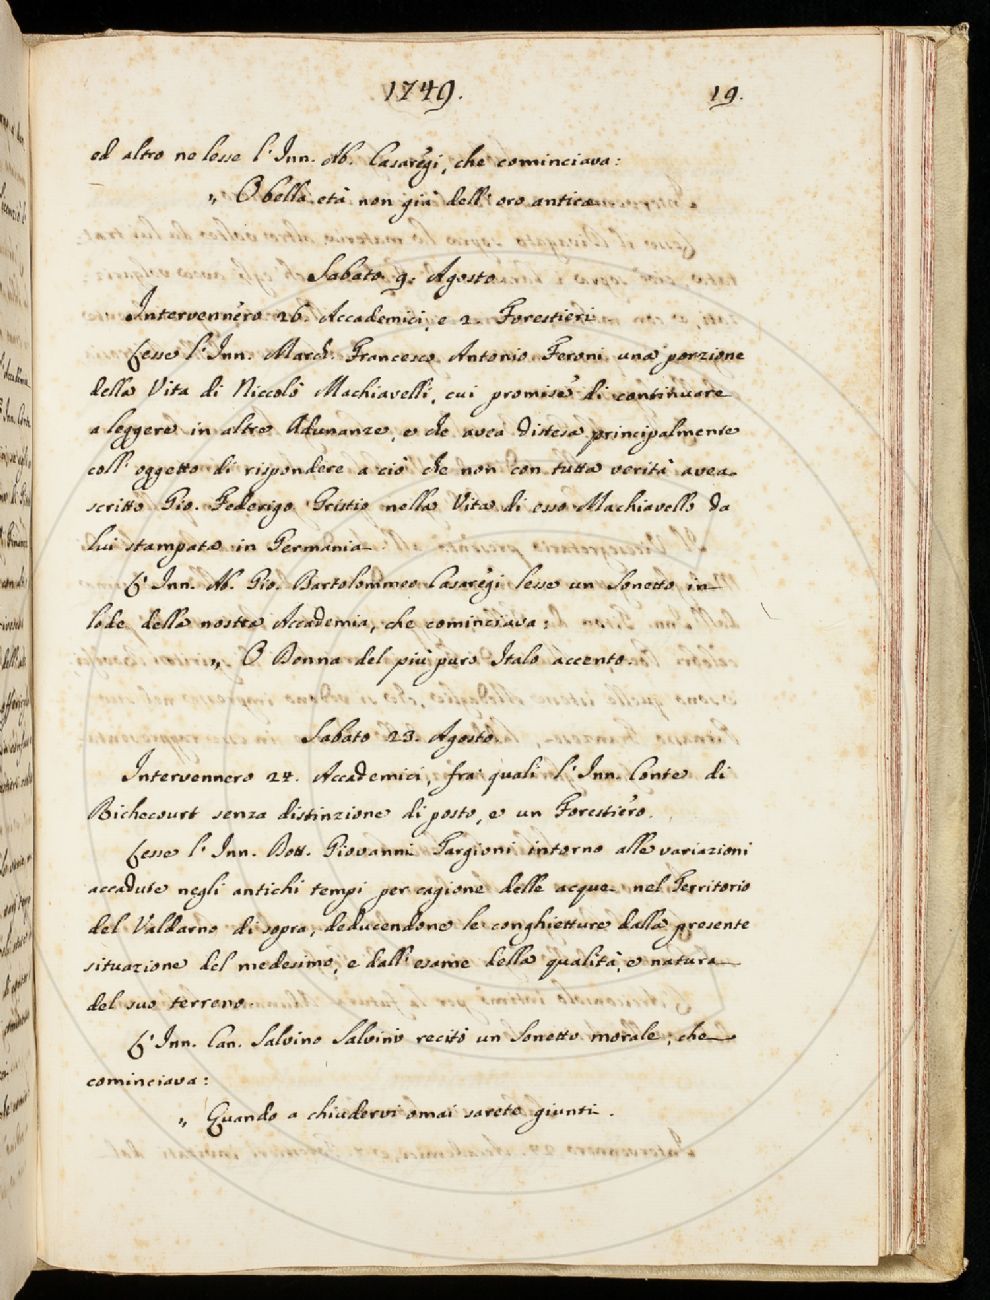 1749.
19.
ed altro ne lesse l'Inn. Ab. Casarègi, che cominciava:
„ O bella età non già dell'oro antico
Sabato 9. Agosto
Intervennero 26. Accademici, e 2. Forestieri
Lesse l'Inn. March. Francesco Antonio Feroni una porzione
della Vita di Niccolò Machiavelli, cui promise di continuare
a leggere in altre Adunanze, e che avea distesa principalmente
coll'oggetto di rispondere a ciò che non con tutta verità avea
scritto Gio. Federigo Cristio nella Vita di esso Machiavello da
lui stampata in Germania
L'Inn. Ab. Gio. Bartolommeo Casarègi lesse un Sonetto in
lode della nostra Accademia, che cominciava:
„ O Donna del più puro Italo accento.
Sabato 23. Agosto.
Intervennero 24. Accademici, fra quali l'Inn. Conte di
Richecourt senza distinzione di posto, e un Forestiero.
Lesse l'Inn. Dott. Giovanni Targioni intorno alle variazioni
accadute negli antichi tempi per cagione delle acque nel Territorio
del Valdarno di sopra, deducendone le conghietture dalla presente
situazione del medesimo, e dall'esame della qualità, e natura
del suo terreno.
L'Inn. Can. Salvino Salvini recitò un Sonetto morale, che
cominciava:
„ Quando a chiudervi omai sarete giunti.